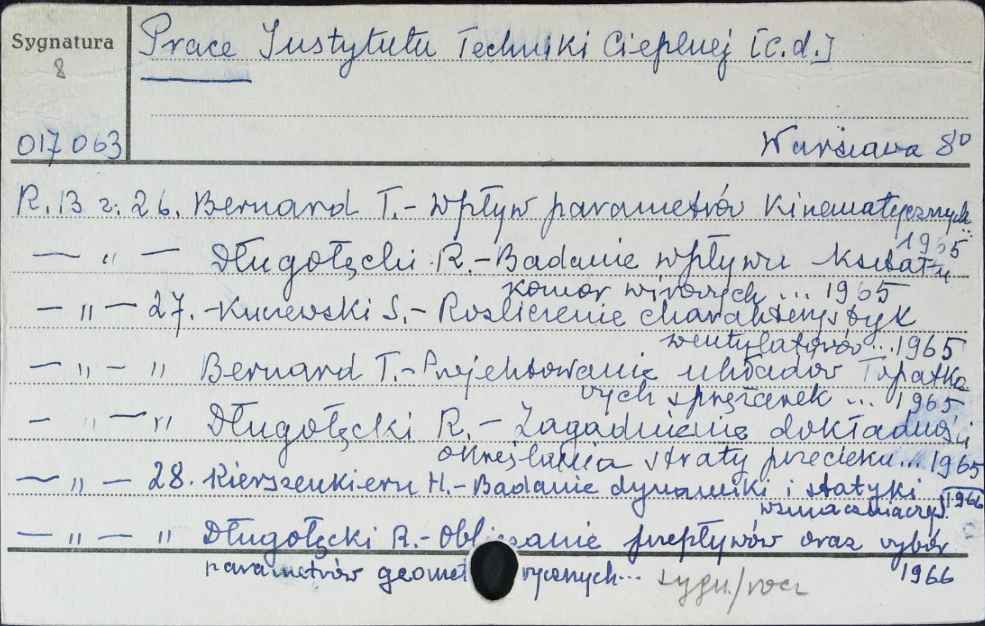 Sygnatura
8
017063
Prace Instytutu Techniki Cieplnej [c.d.]
Warszawa 8°
R. 13 z. 26. Bernard T.- Wpływ parametrów kinematycznych...
1965
— „ — Długołęcki R.- Badanie wpływu kształtu
komor wirowych ... 1965
— „ — 27. - Kuczewski S.- Rozliczenie charakterystyk
wentylatorów ... 1965
— „ — „ Bernard T.- Projektowanie układów łopatko
wych sprężarek ... 1965
— „ — „ Długołęcki R.- Zagadnienie dokładności
określania straty przecieku ... 1965
— „ — 28. Kierszenkiern H.- Badanie dynamiki i statyki
wzmacniaczy 1966
— „ — „ Długołęcki R.- Obliczanie przepływów oraz wybór
parametrów geometrycznych... 1966
sygn./rocz